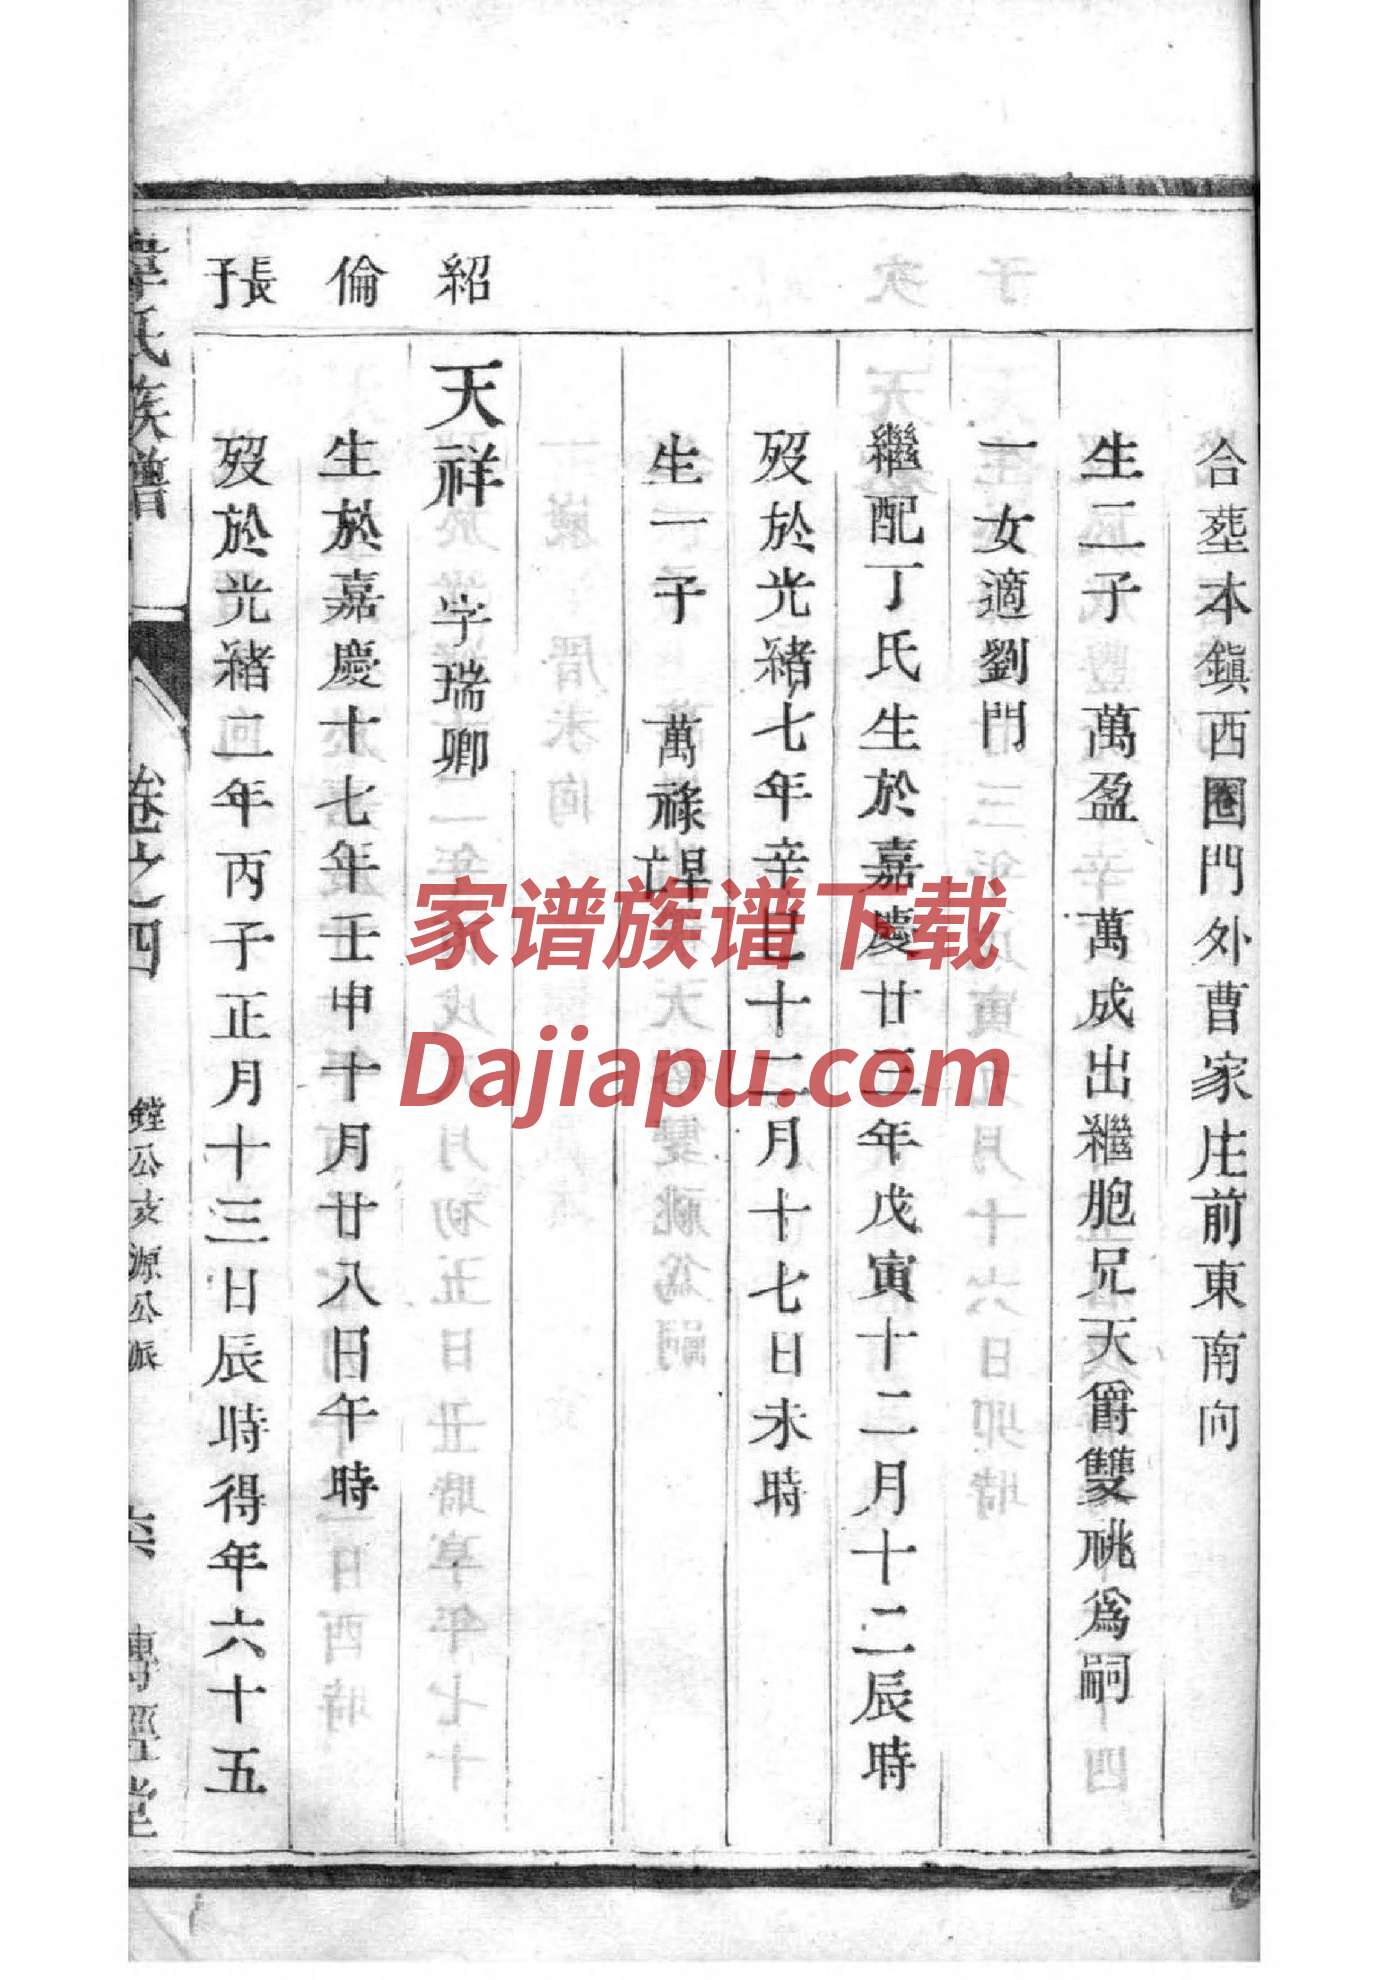 合葬本鎮西圈門外曹家庄前東南向
生二子 萬盈 萬成出繼胞兄天爵雙祧爲嗣
一女適劉門
繼配丁氏生於嘉慶廿三年戊寅十二月十二辰時
歿於光緒七年辛巳十二月十七日未時
生一子 萬祿早亡
紹
天祥 字瑞卿
倫
生於嘉慶十七年壬申十月廿八日午時
張子
歿於光緒二年丙子正月十三日辰時得年六十五
韋氏族譜 卷之四 鏜公支源公派 六 傳經堂
家谱族谱下载
Dajiapu.com